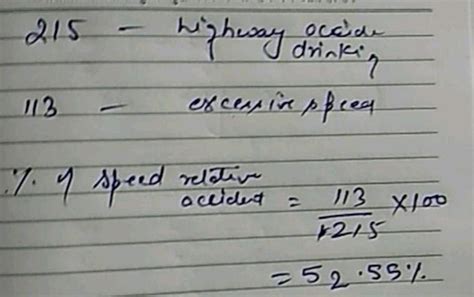 215 - highway accide
drinkin
113 - excessive speed
% of speed relative
accident = 113/215 × 100
= 52.55%